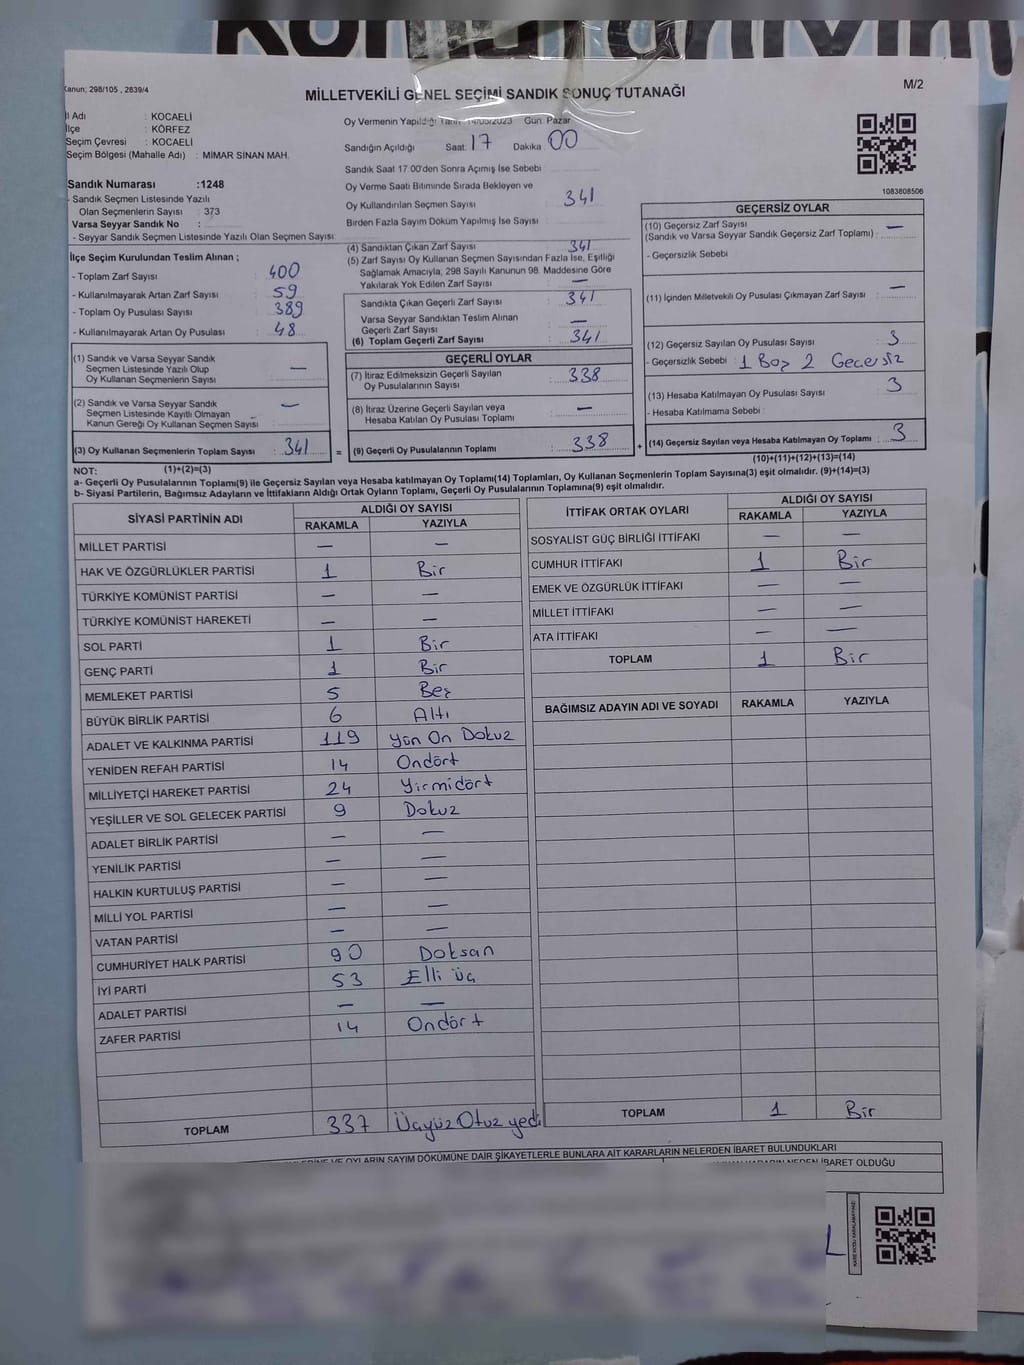 Kanun; 298/105 , 2839/4
MİLLETVEKİLİ GENEL SEÇİMİ SANDIK SONUÇ TUTANAĞI
M/2
İl Adı : KOCAELİ
İlçe : KÖRFEZ
Seçim Çevresi : KOCAELİ
Seçim Bölgesi (Mahalle Adı) : MİMAR SİNAN MAH.
Sandık Numarası :1248
- Sandık Seçmen Listesinde Yazılı
Olan Seçmenlerin Sayısı : 373
Varsa Seyyar Sandık No :
- Seyyar Sandık Seçmen Listesinde Yazılı Olan Seçmen Sayısı:
Oy Vermenin Yapıldığı Tarih: 14/05/2023 Gün: Pazar
Sandığın Açıldığı Saat: 17 Dakika: 00
Sandık Saat 17:00'den Sonra Açımış İse Sebebi
Oy Verme Saati Bitiminde Sırada Bekleyen ve
Oy Kullandırılan Seçmen Sayısı : 341
Birden Fazla Sayım Döküm Yapılmış İse Sayısı :
1083808506
İlçe Seçim Kurulundan Teslim Alınan ;
- Toplam Zarf Sayısı : 400
- Kullanılmayarak Artan Zarf Sayısı : 59
- Toplam Oy Pusulası Sayısı : 389
- Kullanılmayarak Artan Oy Pusulası : 48
(1) Sandık ve Varsa Seyyar Sandık
Seçmen Listesinde Yazılı Olup
Oy Kullanan Seçmenlerin Sayısı : —
(2) Sandık ve Varsa Seyyar Sandık
Seçmen Listesinde Kayıtlı Olmayan
Kanun Gereği Oy Kullanan Seçmen Sayısı : —
(3) Oy Kullanan Seçmenlerin Toplam Sayısı : 341 =
(4) Sandıktan Çıkan Zarf Sayısı : 341
(5) Zarf Sayısı Oy Kullanan Seçmen Sayısından Fazla İse, Eşitliği
Sağlamak Amacıyla; 298 Sayılı Kanunun 98. Maddesine Göre
Yakılarak Yok Edilen Zarf Sayısı : —
Sandıkta Çıkan Geçerli Zarf Sayısı : 341
Varsa Seyyar Sandıktan Teslim Alınan
Geçerli Zarf Sayısı : —
(6) Toplam Geçerli Zarf Sayısı : 341
GEÇERLİ OYLAR
(7) İtiraz Edilmeksizin Geçerli Sayılan
Oy Pusulalarının Sayısı : 338
(8) İtiraz Üzerine Geçerli Sayılan veya
Hesaba Katılan Oy Pusulası Toplamı : —
(9) Geçerli Oy Pusulalarının Toplamı : 338 +
GEÇERSİZ OYLAR
(10) Geçersiz Zarf Sayısı
(Sandık ve Varsa Seyyar Sandık Geçersiz Zarf Toplamı) : —
- Geçersizlik Sebebi
(11) İçinden Milletvekili Oy Pusulası Çıkmayan Zarf Sayısı : —
(12) Geçersiz Sayılan Oy Pusulası Sayısı : 3
- Geçersizlik Sebebi : 1 Boş 2 Gecersiz
(13) Hesaba Katılmayan Oy Pusulası Sayısı : 3
- Hesaba Katılmama Sebebi :
(14) Geçersiz Sayılan veya Hesaba Katılmayan Oy Toplamı : 3
NOT: (1)+(2)=(3) (10)+(11)+(12)+(13)=(14)
a- Geçerli Oy Pusulalarının Toplamı(9) ile Geçersiz Sayılan veya Hesaba katılmayan Oy Toplamı(14) Toplamları, Oy Kullanan Seçmenlerin Toplam Sayısına(3) eşit olmalıdır. (9)+(14)=(3)
b- Siyasi Partilerin, Bağımsız Adayların ve İttifakların Aldığı Ortak Oyların Toplamı, Geçerli Oy Pusulalarının Toplamına(9) eşit olmalıdır.
SİYASİ PARTİNİN ADI ALDIĞI OY SAYISI
RAKAMLA YAZIYLA
MİLLET PARTİSİ — —
HAK VE ÖZGÜRLÜKLER PARTİSİ 1 Bir
TÜRKİYE KOMÜNİST PARTİSİ — —
TÜRKİYE KOMÜNİST HAREKETİ — —
SOL PARTİ 1 Bir
GENÇ PARTİ 1 Bir
MEMLEKET PARTİSİ 5 Beş
BÜYÜK BİRLİK PARTİSİ 6 Altı
ADALET VE KALKINMA PARTİSİ 119 Yüz On Dokuz
YENİDEN REFAH PARTİSİ 14 Ondört
MİLLİYETÇİ HAREKET PARTİSİ 24 Yirmidört
YEŞİLLER VE SOL GELECEK PARTİSİ 9 Dokuz
ADALET BİRLİK PARTİSİ — —
YENİLİK PARTİSİ — —
HALKIN KURTULUŞ PARTİSİ — —
MİLLİ YOL PARTİSİ — —
VATAN PARTİSİ — —
CUMHURİYET HALK PARTİSİ 90 Doksan
İYİ PARTİ 53 Elli üç
ADALET PARTİSİ — —
ZAFER PARTİSİ 14 Ondört
TOPLAM 337 Üçyüz Otuz yedi
İTTİFAK ORTAK OYLARI ALDIĞI OY SAYISI
RAKAMLA YAZIYLA
SOSYALİST GÜÇ BİRLİĞİ İTTİFAKI — —
CUMHUR İTTİFAKI 1 Bir
EMEK VE ÖZGÜRLÜK İTTİFAKI — —
MİLLET İTTİFAKI — —
ATA İTTİFAKI — —
TOPLAM 1 Bir
BAĞIMSIZ ADAYIN ADI VE SOYADI RAKAMLA YAZIYLA
TOPLAM 1 Bir
OYLARIN SAYIM DÖKÜMÜNE DAİR ŞİKAYETLERLE BUNLARA AİT KARARLARIN NELERDEN İBARET BULUNDUKLARI
KARARIN NEDEN İBARET OLDUĞU